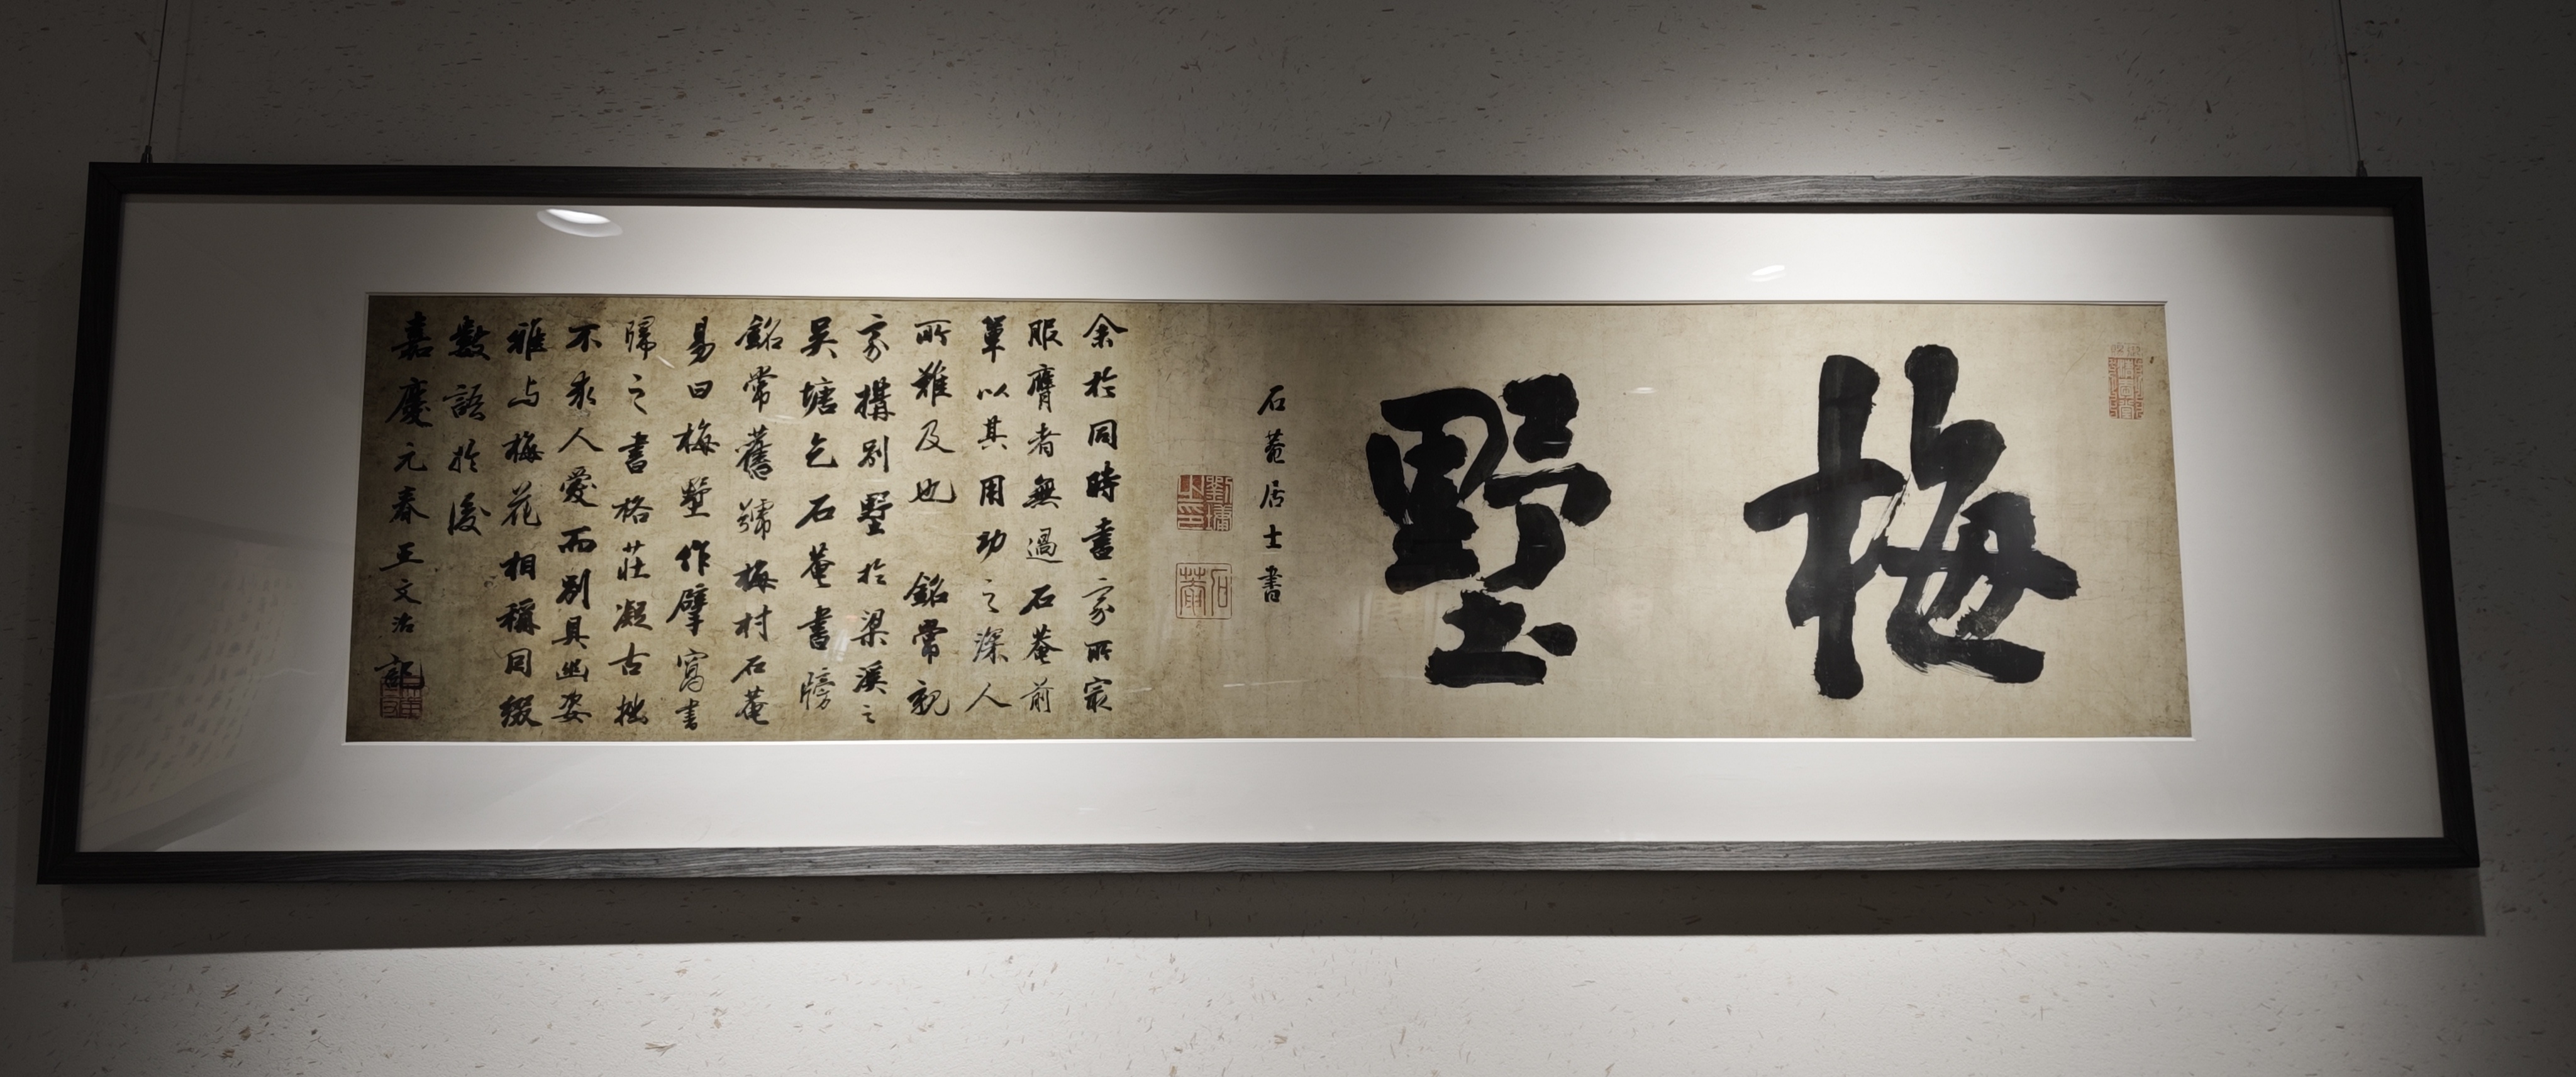 梅墅
石菴居士書
劉墉之印
石菴
余於同時書家所寂
服膺者無過石菴前
輩以其用功之深人
所難及也 銘常親
家搆別墅於梁溪之
吴塘乞石菴書牓
銘常舊號梅村石菴
易曰梅墅作擘窩書
歸之書格莊凝古拙
不求人愛而別具幽姿
雅与梅花相稱因綴
數語於後
嘉慶元春王文治記